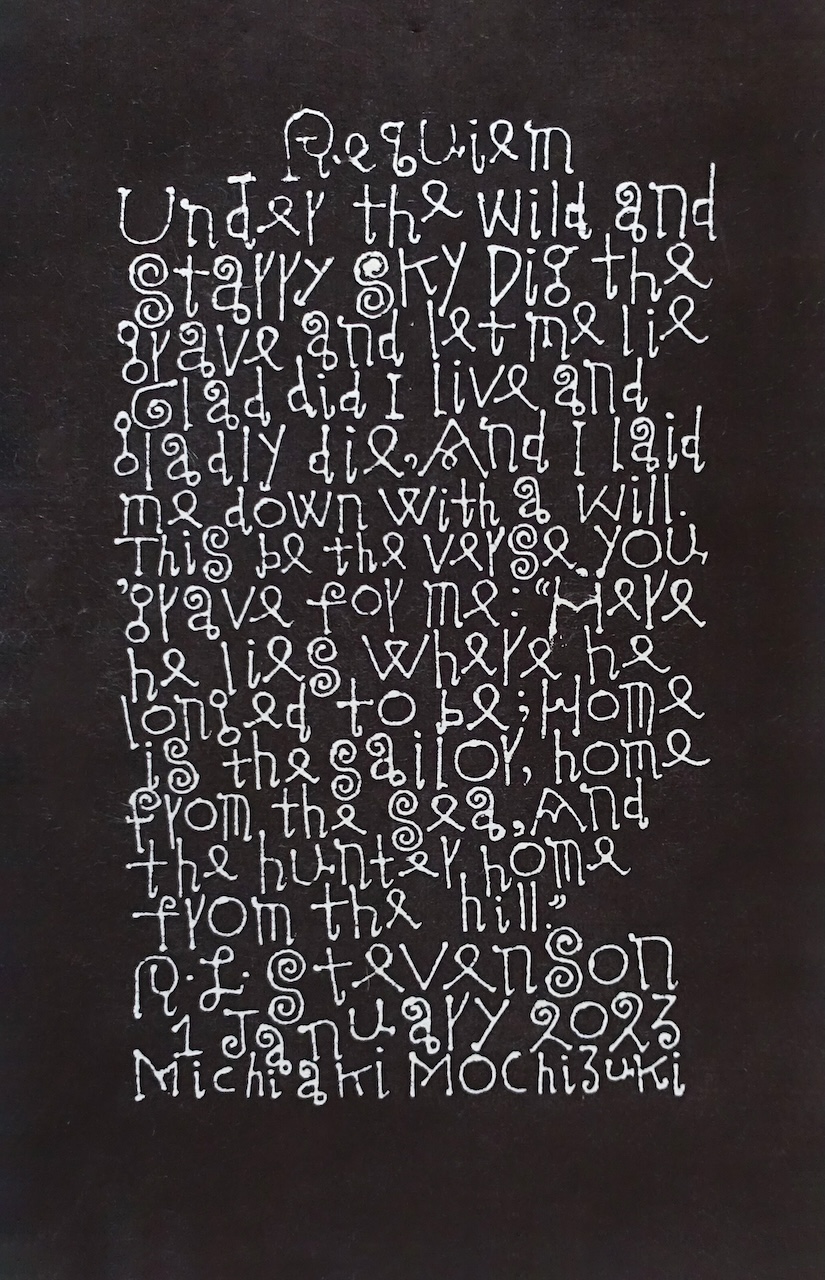 Requiem
Under the wild and
Starry Sky Dig the
grave and let me lie
Glad did I live and
gladly die, And I laid
me down with a will.
This be the verse you
'grave for me: "Here
he lies where he
longed to be; Home
is the sailor, home
from the sea, And
the hunter home
from the hill."
R. L. Stevenson
1 January 2023
Michiaki Mochizuki